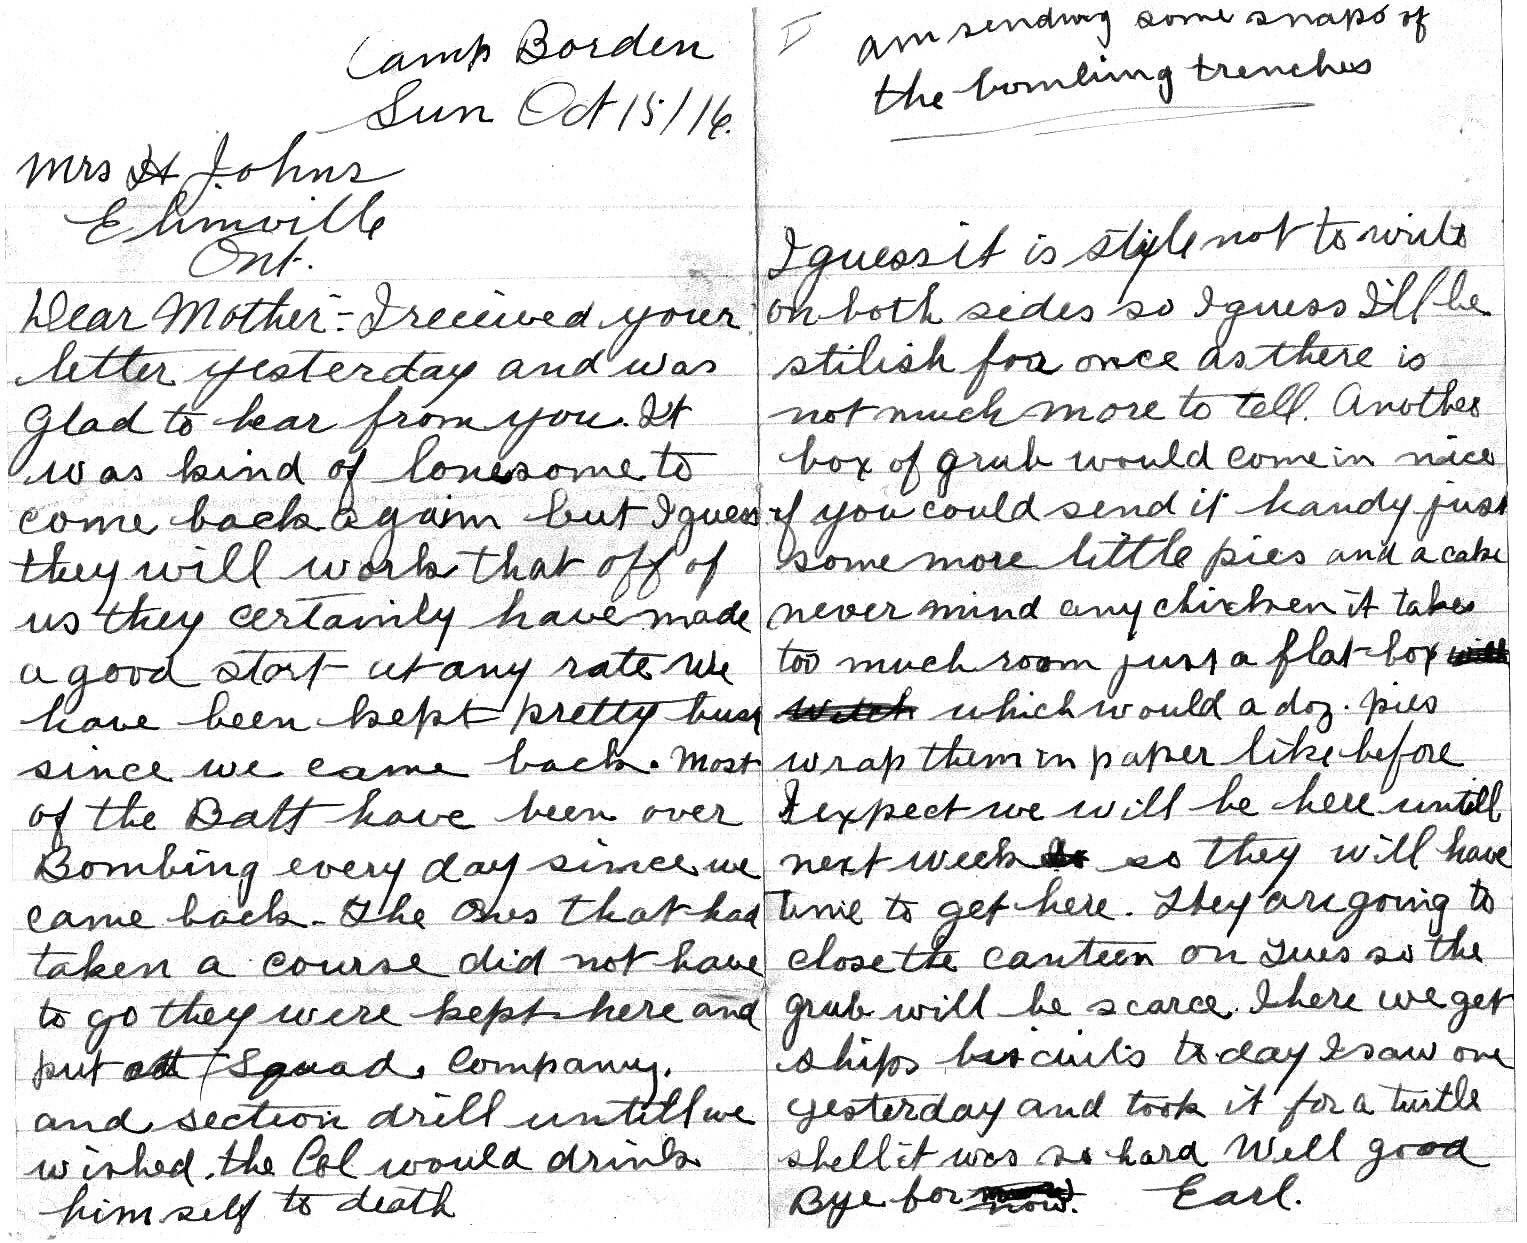 Camp Borden
Sun Oct 15/16.
Mrs H Johns
Elimville
Ont.
Dear Mother:- I received your
letter yesterday and was
glad to hear from you. It
was kind of lonesome to
come back again but I guess
they will work that off of
us they certainly have made
a good start at any rate We
have been kept pretty busy
since we came back. Most
of the Batt have been over
Bombing every day since we
came back. The Ones that had
taken a course did not have
to go they were kept here and
put at Squad, Company,
and section drill untill we
wished the Col would drink
himself to death
I
am sending some snaps of
the bombing trenches
I guess it is style not to write
on both sides so I guess I'll be
stilish for once as there is
not much more to tell. Another
box of grub would come in nice
if you could send it handy just
some more little pies and a cake
never mind any chicken it takes
too much room just a flat box
which would a doz. pies
wrap them in paper like before
I expect we will be here untill
next week so they will have
time to get here. They are going to
close the canteen on Tues so the
grub will be scarce. Where we get
ships biscuits today I saw one
yesterday and took it for a turtle
shell it was so hard Well good
Bye for now. Earl.